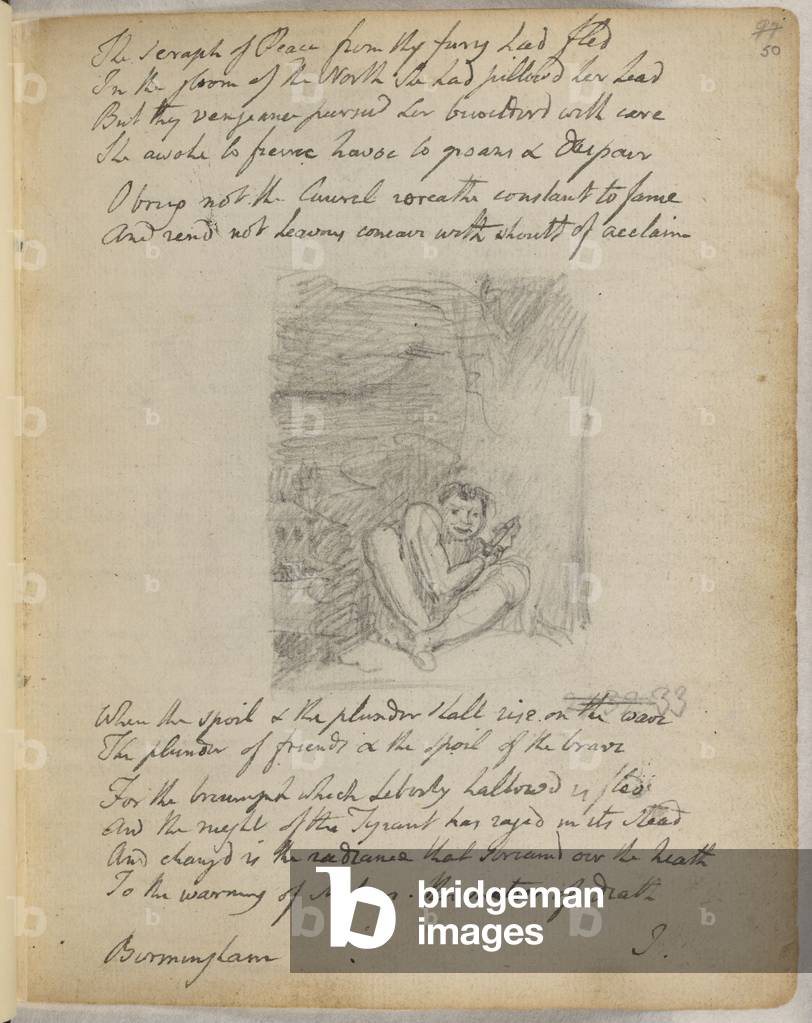 97
50
The seraph of Peace from thy fury had fled
In the gloom of the North She had pillowd her head
But thy vengeance pursud her bewilderd with care
She awoke to frenzic havoc to groans & despair
O bring not the Laurel wreathe constant to fame
And rend not heavens concave with shouts of acclaim
33
When the spoil & the plunder shall rise on the wave
The plunder of friends & the spoil of the brave
For the triumph which Liberty hallowd is fled
And the might of the Tyrant has raged in its stead
And changd is the radiance that streamd oer the heath
To the warning of the meteor of death
Birmingham J.
bridgeman
images